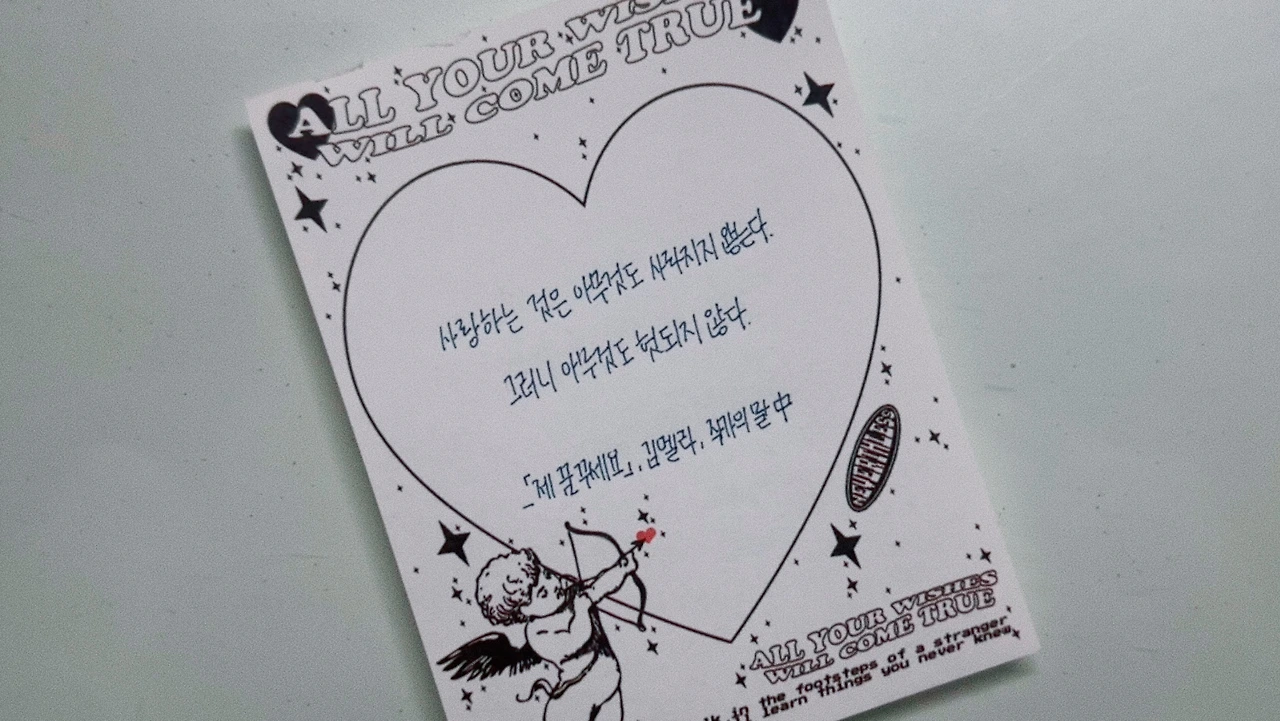 ALL YOUR WISHES
WILL COME TRUE
사랑하는 것은 아무것도 사라지지 않는다.
그러니 아무것도 헛되지 않다.
『제 꿈 꾸세요』, 김멜라, 작가의 말 中
ALL YOUR WISHES
WILL COME TRUE
in the footsteps of a stranger
learn things you never knew